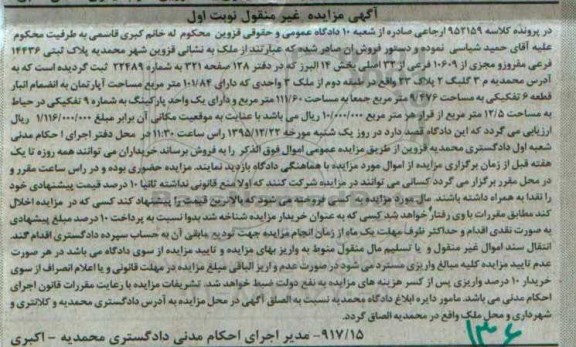 آگهی مزایده غیر منقول نوبت اول
در پرونده کلاسه ۹۵۲۱۵۹ ارجاعی صادره از شعبه ۱۰ دادگاه عمومی و حقوقی قزوین محکوم له خانم کبری قاسمی به طرفیت محکوم
علیه آقای حمید شیاسی نموده و دستور فروش ان صادر شده که عبارتند از ملک به نشانی قزوین شهر محمدیه پلاک ثبتی ۱۴۴۳۶
فرعی مفروزو مجزی از ۱۰۶۰۹ فرعی از ۳۲ اصلی بخش ۱۴ البرز که در دفتر ۱۲۸ صفحه ۳۲۱ به شماره ۲۲۴۸۹ ثبت گردیده است که به
آدرس محمدیه م ۳ گلبگ ۲ پلاک ۲۳ واقع در طبقه دوم از ملک ۳ واحدی که دارای ۱۰۱/۸۴ متر مربع مساحت آپارتمان به انضمام انبار
قطعه ۶ تفکیکی به مساحت ۴۷۶ متر مربع جمعا به مساحت ۱۱۱/۶۰ متر مربع و دارای یک واحد پارکینگ به شماره ۹ تفکیکی در حیاط
به مساحت ۱۲/۵ متر مربع از قرار هر متر مربع ۱۰/۰۰۰/۰۰۰ ریال می باشد با عنایت به موقعیت مکانی آن برابر مبلغ ۱/۱۱۶/۰۰۰/۰۰۰ ریال
ارزیابی می گردد که این دادگاه قصد دارد در روز یک شنبه مورخه ۱۳۹۵/۱۲/۲۲ راس ساعت ۱۱:۳۰ در محل دفتر اجرای احکام مدنی
شعبه اول دادگستری محمدیه قزوین از طریق مزایده عمومی اموال فوق الذکر را به فروش برساند خریداران می توانند همه روزه تا یک
هفته قبل از زمان برگزاری مزایده از اموال مورد مزایده با هماهنگی دادگاه بازدید نمایند. مزایده حضوری بوده و در راس ساعت مقرر و
در محل مقرر برگزار می گردد کسانی می توانند در مزایده شرکت کنند که اولا منع قانونی نداشته ثانیا ۱۰ درصد قیمت پیشنهادی خود
را نقدا به همراه داشته باشند. مال مورد مزایده به کسی فروخته می شود که بالاترین قیمت را پیشنهاد کند کسی که در مزایده اخلال
کند مطابق مقررات با وی رفتار خواهد شد کسی که به عنوان خریدار مزایده شناخته شد بدوا نسبت به پرداخت ۱۰ درصد مبلغ پیشنهادی
به صورت نقدی اقدام و حداکثر ظرف مهلت یک ماه از زمان انجام مزایده جهت تودیع مابقی آن به حساب سپرده دادگستری اقدام کند.
انتقال سند اموال غیر منقول و یا تسلیم مال منقول منوط به واریز بهای مزایده و تایید مزایده از سوی دادگاه می باشد در هر صورت
عدم تایید مزایده کلیه مبالغ واریزی مسترد می شود در صورت عدم واریز الباقی مبلغ مزایده در مهلت قانونی و یا اعلام انصراف از سوی
خریدار ۱۰ درصد واریزی پس از کسر هزینه های مزایده به نفع دولت ضبط خواهد شد. تشریفات مزایده با رعایت مقررات قانون اجرای
احکام مدنی می باشد. مامور دایره ابلاغ دادگاه محمدیه نسبت به الصاق آگهی در محل مزایده به آدرس دادگستری محمدیه و کلانتری و
شهرداری و محل ملک واقع در محمدیه الصاق گردد.
۹۱۷/۱۵- مدیر اجرای احکام مدنی دادگستری محمدیه - اکبری
۱۳۶